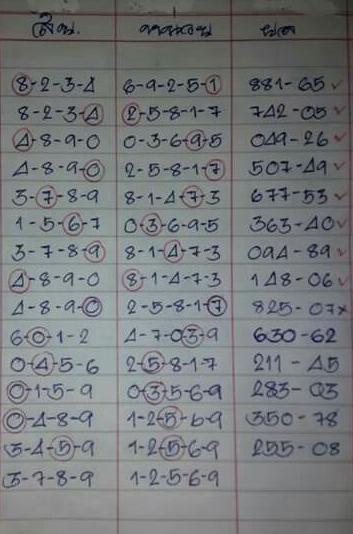 8-2-3-4 6-9-2-5-1 881-65 ✓
8-2-3-4 2-5-8-1-7 742-05 ✓
4-8-9-0 0-3-6-9-5 049-26 ✓
4-8-9-0 2-5-8-1-7 507-49 ✓
3-7-8-9 8-1-4-7-3 677-53 ✓
1-5-6-7 0-3-6-9-5 363-40 ✓
3-7-8-9 8-1-4-7-3 094-89 ✓
4-8-9-0 8-1-4-7-3 148-06 ✓
4-8-9-0 2-5-8-1-7 825-07 x
6-0-1-2 4-7-0-3-9 630-62
0-4-5-6 2-5-8-1-7 211-45
0-1-5-9 0-3-5-6-9 283-03
0-4-8-9 1-2-5-6-9 350-78
3-4-5-9 1-2-5-6-9 255-08
3-7-8-9 1-2-5-6-9